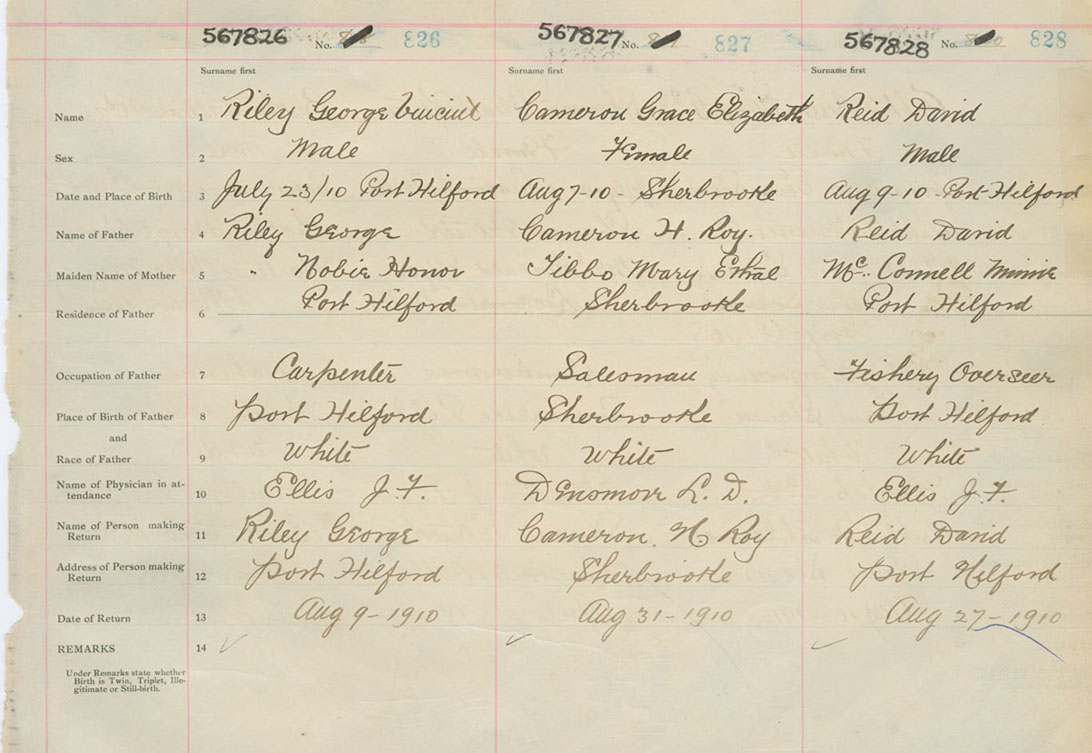 567826 No. 826 567827 No. 827 567828 No. 828
Surname first Surname first Surname first
Name 1 Riley George Vincent Cameron Grace Elizabeth Reid David
Sex 2 Male Female Male
Date and Place of Birth 3 July 23/10 Port Hilford Aug 7-10 - Sherbrooke Aug 9-10 - Port Hilford
Name of Father 4 Riley George Cameron H. Roy. Reid David
Maiden Name of Mother 5 " Nobie Honor Tibbo Mary Ethel Mc. Connell Minnie
Residence of Father 6 Port Hilford Sherbrooke Port Hilford
Occupation of Father 7 Carpenter Salesman Fishery Overseer
Place of Birth of Father 8 Port Hilford Sherbrooke Port Hilford
and
Race of Father 9 White White White
Name of Physician in at-
tendance 10 Ellis J. F. Densmore L. D. Ellis J. F.
Name of Person making
Return 11 Riley George Cameron. H Roy Reid David
Address of Person making
Return 12 Port Hilford Sherbrooke Port Hilford
Date of Return 13 Aug 9-1910 Aug 31-1910 Aug 27-1910
REMARKS 14
Under Remarks state whether
Birth is Twin, Triplet, Ille-
gitimate or Still-birth.